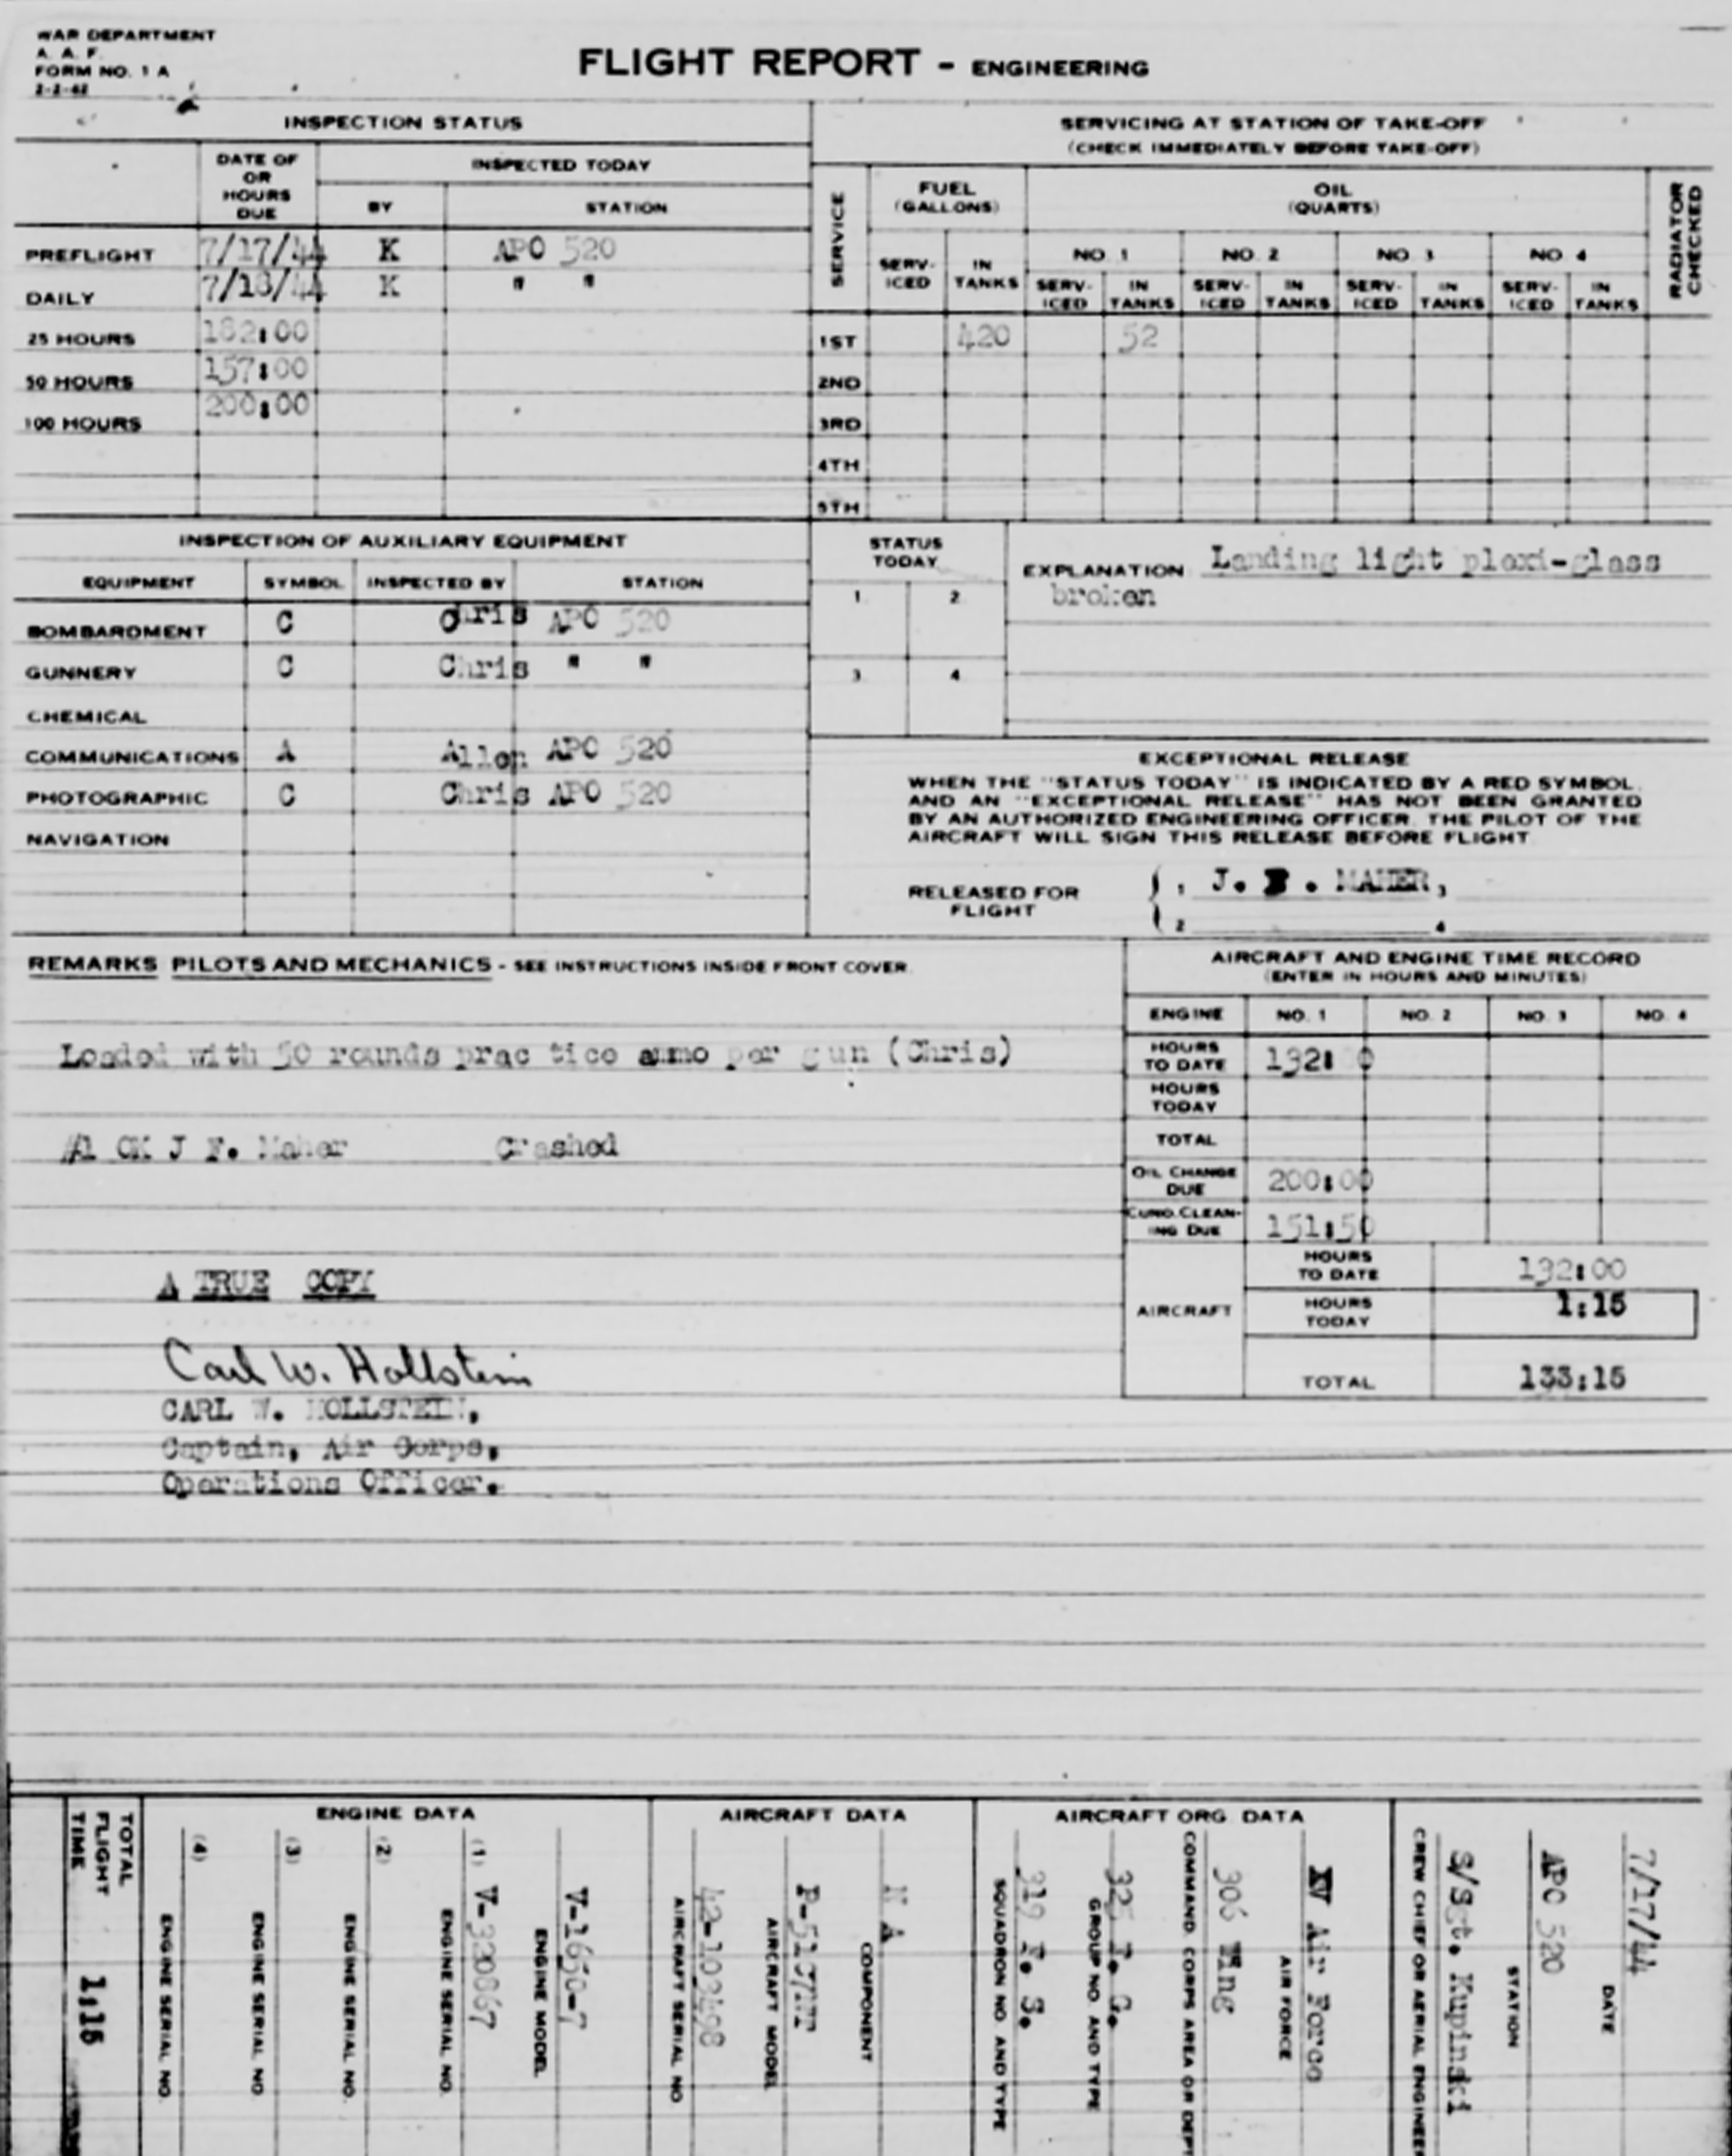 WAR DEPARTMENT
A. A. F.
FORM NO. 1 A
2-2-42
FLIGHT REPORT - ENGINEERING
INSPECTION STATUS
DATE OF OR HOURS DUE
INSPECTED TODAY
BY STATION
PREFLIGHT 7/17/44 K APO 520
DAILY 7/18/44 K " "
25 HOURS 182:00
50 HOURS 157:00
100 HOURS 200:00
SERVICING AT STATION OF TAKE-OFF
(CHECK IMMEDIATELY BEFORE TAKE-OFF)
SERVICE
FUEL (GALLONS)
OIL (QUARTS)
RADIATOR CHECKED
NO. 1 NO. 2 NO. 3 NO. 4
SERV-ICED IN TANKS SERV-ICED IN TANKS SERV-ICED IN TANKS SERV-ICED IN TANKS SERV-ICED IN TANKS
1ST 420 52
2ND
3RD
4TH
5TH
INSPECTION OF AUXILIARY EQUIPMENT
EQUIPMENT SYMBOL INSPECTED BY STATION
BOMBARDMENT C Chris APO 520
GUNNERY C Chris " "
CHEMICAL
COMMUNICATIONS A Allen APO 520
PHOTOGRAPHIC C Chris APO 520
NAVIGATION
STATUS TODAY
1. 2.
3. 4.
EXPLANATION Landing light plexi-glass
broken
EXCEPTIONAL RELEASE
WHEN THE "STATUS TODAY" IS INDICATED BY A RED SYMBOL,
AND AN "EXCEPTIONAL RELEASE" HAS NOT BEEN GRANTED
BY AN AUTHORIZED ENGINEERING OFFICER. THE PILOT OF THE
AIRCRAFT WILL SIGN THIS RELEASE BEFORE FLIGHT
RELEASED FOR FLIGHT
1 J. . MAHER, 3
2 4
REMARKS PILOTS AND MECHANICS - SEE INSTRUCTIONS INSIDE FRONT COVER.
Loaded with 50 rounds prac tice ammo per gun (Chris)
#1 OK J F. Maher Crashed
A TRUE COPY
Carl W. Hollstein
CARL W. HOLLSTEIN,
Captain, Air Corps,
Operations Officer.
AIRCRAFT AND ENGINE TIME RECORD
(ENTER IN HOURS AND MINUTES)
ENGINE NO. 1 NO. 2 NO. 3 NO. 4
HOURS TO DATE 132: 0
HOURS TODAY
TOTAL
OIL CHANGE DUE 200:00
CUNO. CLEAN-ING DUE 151:50
AIRCRAFT
HOURS TO DATE 132:00
HOURS TODAY 1:15
TOTAL 133:15
TOTAL FLIGHT TIME 1:15
ENGINE DATA
(4) ENGINE SERIAL NO.
(3) ENGINE SERIAL NO.
(2) ENGINE SERIAL NO.
(1) V-320867 ENGINE SERIAL NO.
V-1650-7 ENGINE MODEL
AIRCRAFT DATA
42-103498 AIRCRAFT SERIAL NO
AIRCRAFT MODEL
N A COMPONENT
AIRCRAFT ORG. DATA
319 F. S. SQUADRON NO. AND TYPE
325 F. G. GROUP NO. AND TYPE
306 Wing COMMAND. CORPS AREA OR DEPT
XV Air Force AIR FORCE
S/Sgt. Kupinski CREW CHIEF OR AERIAL ENGINEER
APO 520 STATION
7/17/44 DATE